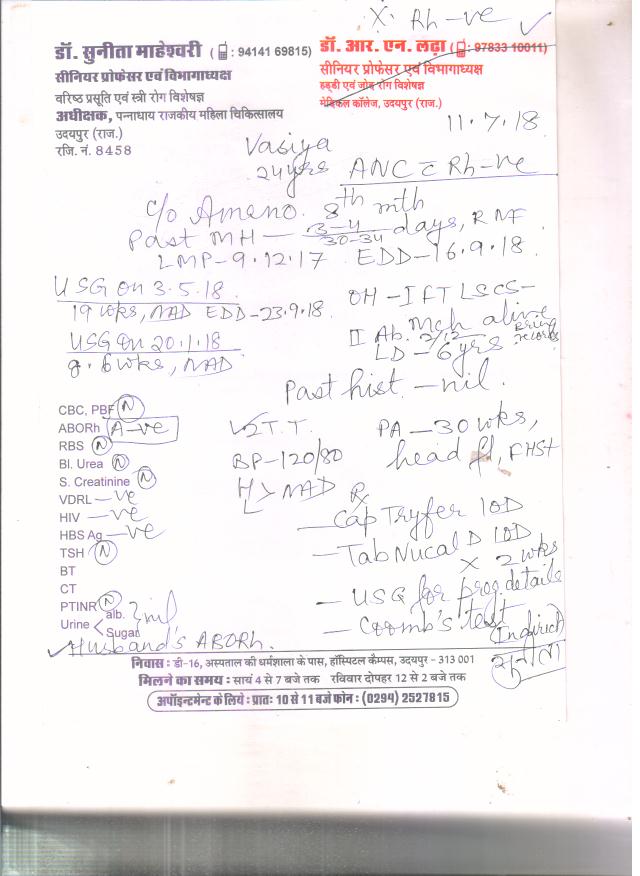 X. Rh -ve ✓
डॉ. सुनीता माहेश्वरी ( : 94141 69815)
सीनियर प्रोफेसर एवं विभागाध्यक्ष
वरिष्ठ प्रसूति एवं स्त्री रोग विशेषज्ञ
अधीक्षक, पन्नाधाय राजकीय महिला चिकित्सालय
उदयपुर (राज.)
रजि. नं. 8458
डॉ. आर. एन. लढ़ा ( : 97833 10011)
सीनियर प्रोफेसर एवं विभागाध्यक्ष
हड्डी एवं जोड़ रोग विशेषज्ञ
मेडिकल कॉलेज, उदयपुर (राज.)
11.7.18
Vasiya
24yrs ANC c̄ Rh-ve
c/o Ameno. 8th mth
Past MH — 3-4/30-34 days, R NF
LMP-9.12.17 EDD-16.9.18
USG on 3.5.18
19 wks, NAD EDD-23.9.18
USG on 20.1.18
g. 6 wks, NAD
OH - I FTLSCS-
Mch alive
II Ab. 2/12
LD - 6yrs
Bring records
Past hist. - nil.
CBC, PBF (N)
ABORh A-ve
RBS (N)
Bl. Urea (N)
S. Creatinine (N)
VDRL -ve
HIV -ve
HBS Ag -ve
TSH (N)
BT
CT
PTINR (N)
Urine < alb. Sugar } nil
✓ Husband's ABORh.
✓2 T.T.
BP-120/80
H
L > NAD
PA - 30 wks,
head fl, FHS+
Rx
- Cap Tryfer 1OD
- Tab Nucal D 1OD
X 2 wks
- USG for preg. details
- Coomb's test (Indirect)
सुनीता
निवास : डी-16, अस्पताल की धर्मशाला के पास, हॉस्पिटल कैम्पस, उदयपुर - 313 001
मिलने का समय : सायं 4 से 7 बजे तक रविवार दोपहर 12 से 2 बजे तक
अपॉइन्टमेन्ट के लिये : प्रातः 10 से 11 बजे फोन : (0294) 2527815